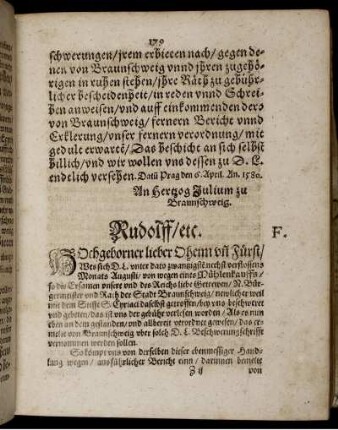 179
schwerungen/ jrem erbieten nach/ gegen de-
nen von Braunschweig vnnd jhren zugehö-
rigen in ruhen stehen/ jhre Räth zu gebühr-
licher bescheidenheit/ in reden vnnd Schrei-
ben anweisen/ vnd auff einkommenden ders
von Braunschweig/ fernern Bericht vnnd
Erklerung/ vnser fernern verordnung/ mit
gedult erwarte/ Das beschicht an sich selbst
billich/ vnd wir wollen vns dessen zu D. L.
endtlich versehen. Datū Prag den 6. April. An. 1580.
An Hertzog Julium zu
Braunschweig.
Rudolff/ etc.
F.
HOchgeborner lieber Oheim vñ Fürst/
Wes sich D. L. unter dato zwantzigst nechst verflossens
Monats Augusti/ von wegen eines Mühlenkauffs/
so die Ersamen vnsere vnd des Reichs liebe Getrewen/ N. Bür-
germeister vnd Rath der Stadt Braunschweig/ newlicher weil
mit dem Stifft S. Cyriaci daselbst getroffen/ bey vns beschweret
vnd gebeten/ das ist vns der gebühr vorlesen worden/ Als es nun
eben an dem gestanden/ vnd allbereit verordnet gewesen/ das er-
melte von Braunschweig vber solch D. L. Beschwerungschrifft
vernommen werden sollen.
So kömpt vns von derselben dieser ebenmessiger Hand-
lung wegen/ ausführlicher Bericht ein/ darinnen
Z ij
von